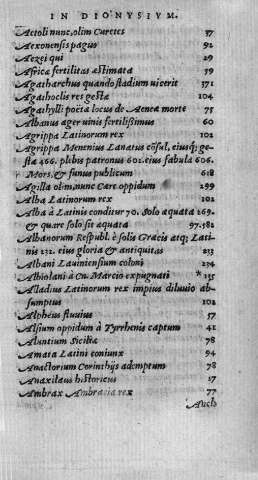 IN DIONYSIUM.
Actoli nunc, olim Curetes 37
Aexonensis pagus 92
Aezei qui 29
Africæ fertilitas æstimata 59
Agatharchus quando stadium vicerit 371
Agathoclis res gestæ 104
Agathylli poëta locus de Aeneæ morte 75
Albanus ager vinis fertilissimus 60
Agrippa Latinorum rex 102
Agrippa Menenius Lanatus cōsul, eiusq; ge-
sta 466. plebis patronus 602. eius fabula 606.
Mors, & funus publicum 618
Agilla olim, nunc Cære oppidum 299
Alba Latinorum rex 102
Alba à Latinis conditur 70. Solo æquata 169.
& quare solo sit æquata 97.581
Albanorum Respubl. è solis Græcis atq; Lati-
nis 232. eius gloria & antiquitas 233
Albani Lauiniensium coloni 234
Albiolani à Cn. Marcio expugnati *155
Alladius Latinorum rex impius diluuio ab-
sumptus 102
Alpheus fluuius 57
Alsium oppidum à Tyrrhenis captum 42
Aluntium Siciliæ 78
Amata Latini coniunx 94
Anactorium Corinthijs ademptum 78
Anaxilaus historicus 17
Ambrax Ambracia rex 77